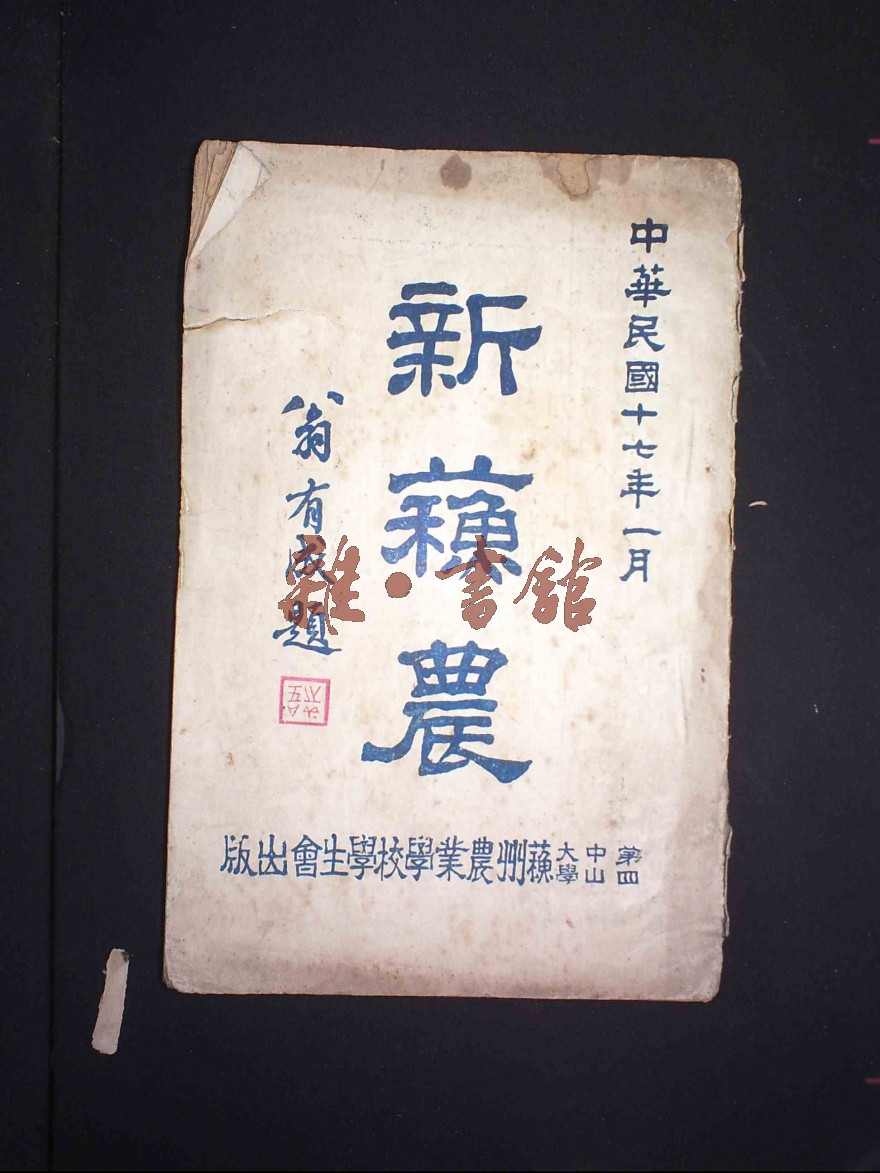 中華民國十七年一月
新蘓農
翁有成題
第四中山大學蘓州農業學校學生會出版
雜·書館